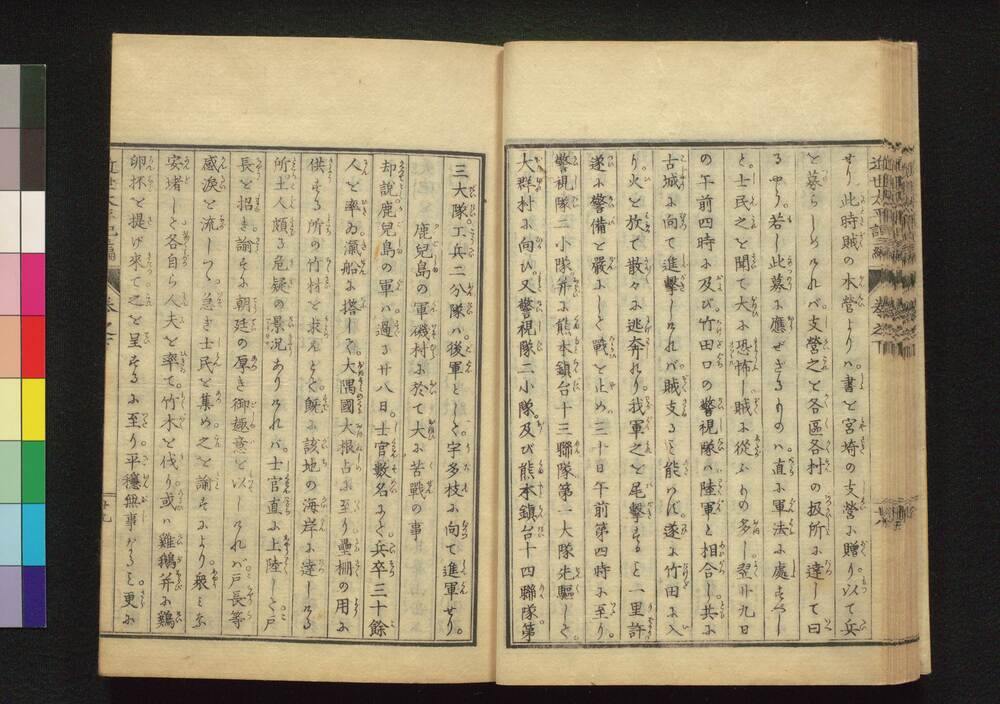 せり此時賊の本營よりハ書を宮埼の支營ふ贈り以て兵
を募らしめけれバ支營之を各區各村の扱所ふ達して曰
るやう若し此募ふ應ぜざるものハ直ふ軍法ふ處すべし
と士民之を聞て大ふ恐怖し賊ふ從ふもの多し翌廿九日
の午前四時ふ及び竹田口の警視隊ハ陸軍と相合し共ふ
古城ふ向て進擊しけれバ賊支ること能はず遂ふ竹田ふ入
り火を放て散々ふ逃奔れり我軍之を尾擊すること一里許
遂ふ警備を嚴ふして戰を止め三十日午前第四時ふ至り
警視隊二小隊并ふ熊本鎭台十三聯隊第一大隊先驅して
大群村ふ向ひ又警視隊二小隊及び熊本鎭台十四聯隊第
三大隊工兵二分隊ハ後軍として宇多枝ふ向て進軍せり
鹿兒島の軍磯村ふ於て大ふ苦戰の事
却說鹿兒島の軍ハ過る廿八日士官數名ふて兵卒三十餘
人を率ゐ瀛船ふ搭して大隅國大根占ふ至り壘柵の用ふ
供する所の竹材を求んとて既ふ該地の海岸ふ達しける
所土人頗る危疑の景況ありけれバ士官直ふ上陸して戸
長を招き諭すふ朝廷の厚き御趣意を以しけれハ戸長等
感淚を流しつゝ急き士民を集め之を諭すふより衆みな
安堵して各自ら人夫を率て竹木を伐り或ハ雞鵝并ふ鷄
卵抔を提げ來て之を呈するふ至り平穩無事なること更ふ
近世太平記
卷之
廿九